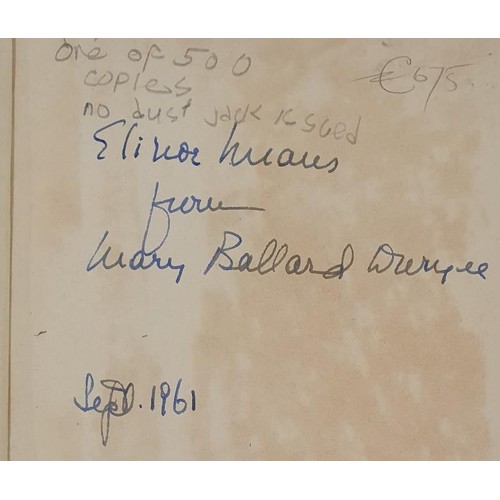 one of 500
copiess
€675
no dust jack issued
Elinor Means
from
Mary Ballard Duryee
Sept. 1961